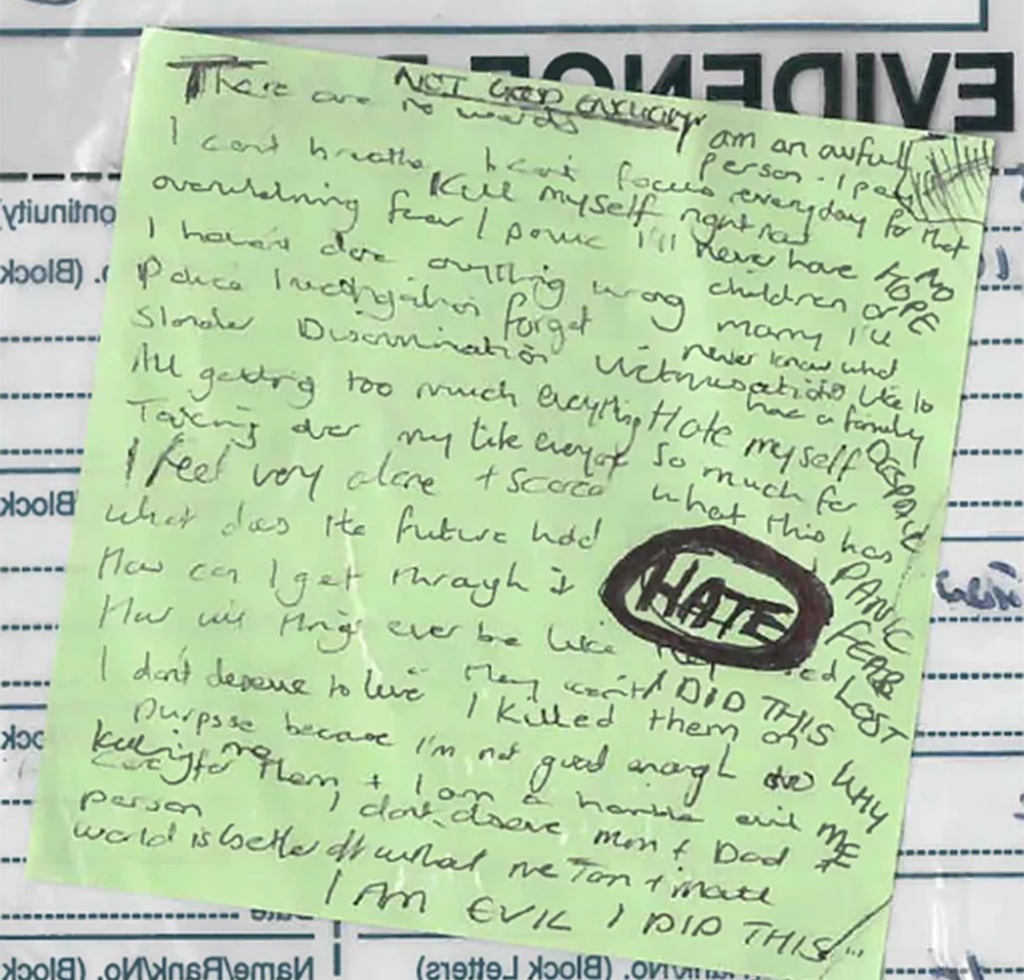 EVIDENCE
NOT GOOD ENOUGH
There are no words
I am an awful
person - I pay
every day for that
I cant breathe I can't focus
Kill myself right now
overwhelming fear / panic
I'll never have
children or
marry I'll
never know what
like to
have a family
NO
HOPE
I haven't done anything wrong
Police Investigation forget
Slander Discrimination Victimisation
All getting too much everything
Taking over my life everyday
Hate myself
so much for
what this has
DESPAIR
PANIC
FEAR
LOST
I feel very alone + scared
What does the future hold
How can I get through it
HATE
How will things ever be like
I don't deserve to live
They won't
I DID THIS
WHY
ME
I killed them on
purpose because I'm not good enough
killing me
care for them + I am a horrible evil
person
I don't deserve mum + Dad
world is better off without me Tom + matt
I AM EVIL I DID THIS
ontinuity
(Block
(Block
Name/Rank/No. (Block
Rank/No. (Block Letters)